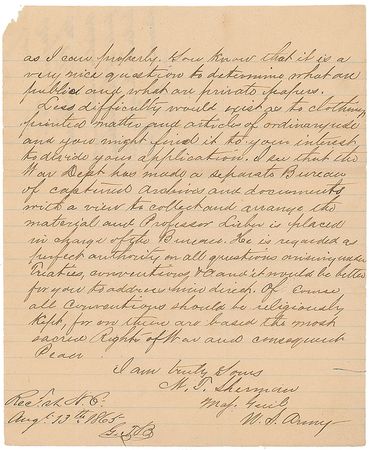 as I can properly. You know that it is a
very nice question to determine, what are
public and what are private papers.
Less difficulty would exist as to clothing,
printed matter and articles of ordinary use
and you might find it to your interest
to divide your application. I see that the
War Dept has made a separate Bureau
of captured Archives and documents
with a view to collect and arrange the
material and Professor Lieber is placed
in charge of the Bureau. He is regarded as
perfect authority on all questions arising under
Treaties, conventions, &c and it would be better
for you to address him direct. Of Course
all Conventions should be religiously
Kept, for on them are based the most
sacred Rights of War and consequent
Peace
I am truly Yours
W. T. Sherman
Maj. Genl.
U. S. Army
Recd. at N. O.
Augt. 13th 1865
G.T.B